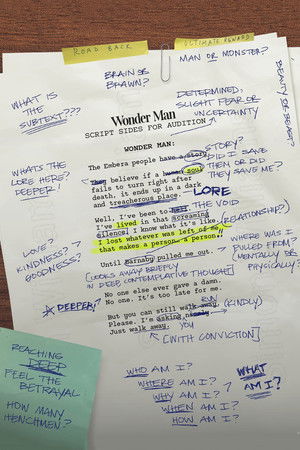 ROAD BACK
ULTIMATE REWARD
BRAIN OR
BRAWN?
MAN OR MONSTER?
BEAUTY OR BEAST?
WHAT IS
THE
SUBTEXT???
DETERMINED,
SLIGHT FEAR OR
UNCERTAINTY
Wonder Man
SCRIPT SIDES FOR AUDITION
WONDER MAN:
The Embera people have a story.
They believe if a human soul
fails to turn right after
death, it ends up in a dark
and treacherous place.
STORY?
DID I SAVE
THEM OR DID
THEY SAVE ME?
LORE
WHATS THE
LORE HERE?
DEEPER!
Well, I've been to
THE VOID
I've lived in that screaming
silence. I know what it's like.
I lost whatever was left of me
that makes a person… a person!!
Until Barnaby pulled me out.
(RELATIONSHIP?)
WHERE WAS I
PULLED FROM?
MENTALLY OR
PHYSICALLY?
LOVE?
KINDNESS?
GOODNESS?
[LOOKS AWAY BRIEFLY
IN DEEP, CONTEMPLATIVE THOUGHT]
No one else ever gave a damn.
No one. It's too late for me.
DEEPER!
RUN
But you can still walk away.
(KINDLY)
Please. I'm asking nicely
YOU
Just walk away.
[WITH CONVICTION]
REACHING
DEEP
FEEL THE
BETRAYAL
HOW MANY
HENCHMEN?
WHO AM I?
WHERE AM I?
WHY AM I?
WHEN AM I?
HOW AM I?
WHAT
AM I?